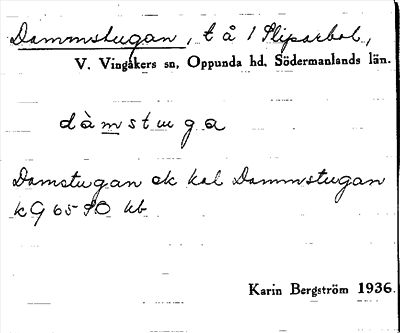 Dammstugan, t å 1 Sliparbol,
V. Vingåkers sn, Oppunda hd, Södermanlands län.
dàmstuga
Damstugan ek kal Dammstugan
kb
Karin Bergström 1936.